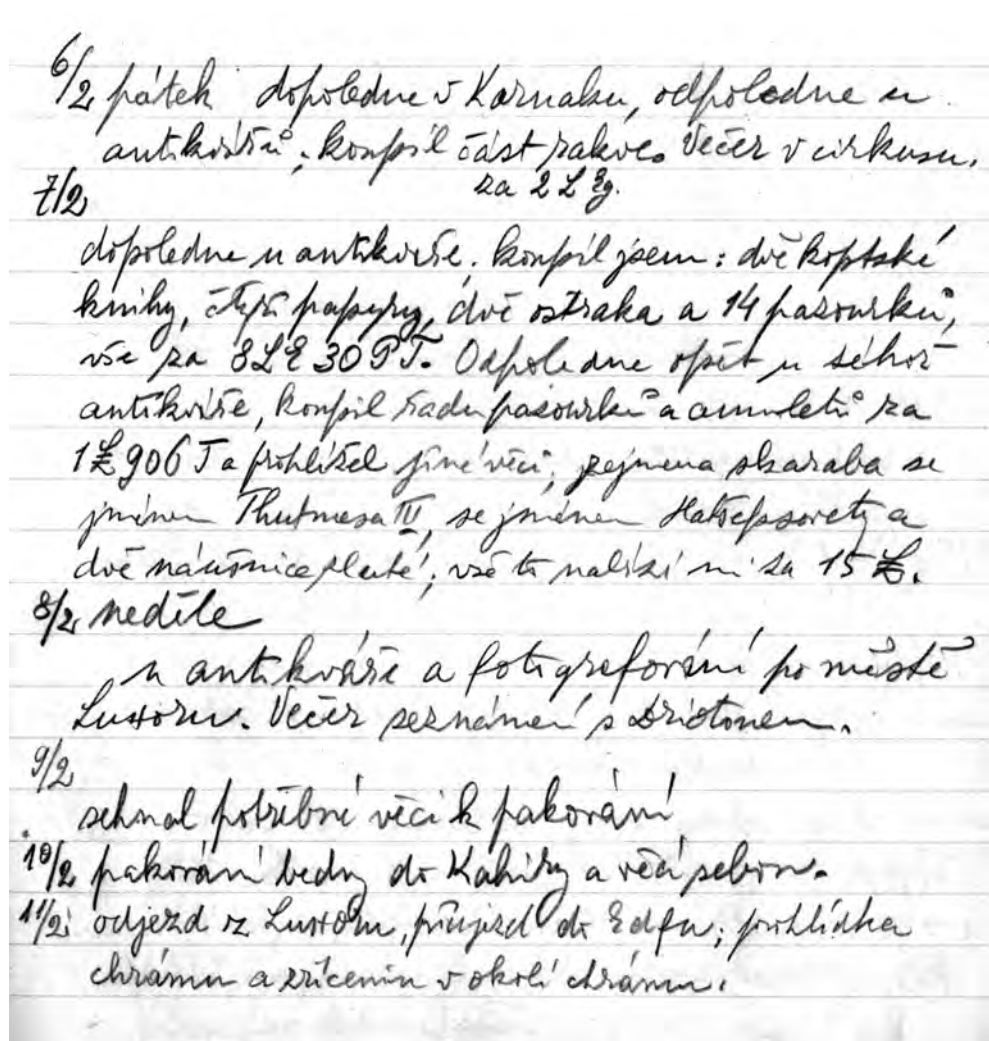 6/2 pátek dopoledne v Karnaku, odpoledne u
antikvářů; koupil část rakve. Večer v cirkusu.
za 2 L Eg.
7/2
dopoledne u antikváře. koupil jsem: dvě koptské
knihy, čtyři papyry, dvě ostraka a 14 pazourků,
vše za 8 L E 30 PT. Odpoledne opět u téhož
antikváře, koupil řadu pazourků a amuletů za
1 £ 90 PT a prohlížel jiné věci, zejmena skaraba se
jménem Thutmosa III, se jménem Hatšepsovety a
dvě náušnice zlaté; vše to nabízí mi za 15 £.
8/2 neděle
u antikváře a fotografování po městě
Luxoru. Večer seznámení s Driotonem.
9/2
sehnal potřebné věci k pakování
10/2 pakování bedny do Kahiry a věcí sebou.
11/2 odjezd z Luxoru, příjezd do Edfu; prohlídka
chrámu a zřícenin v okolí chrámu.